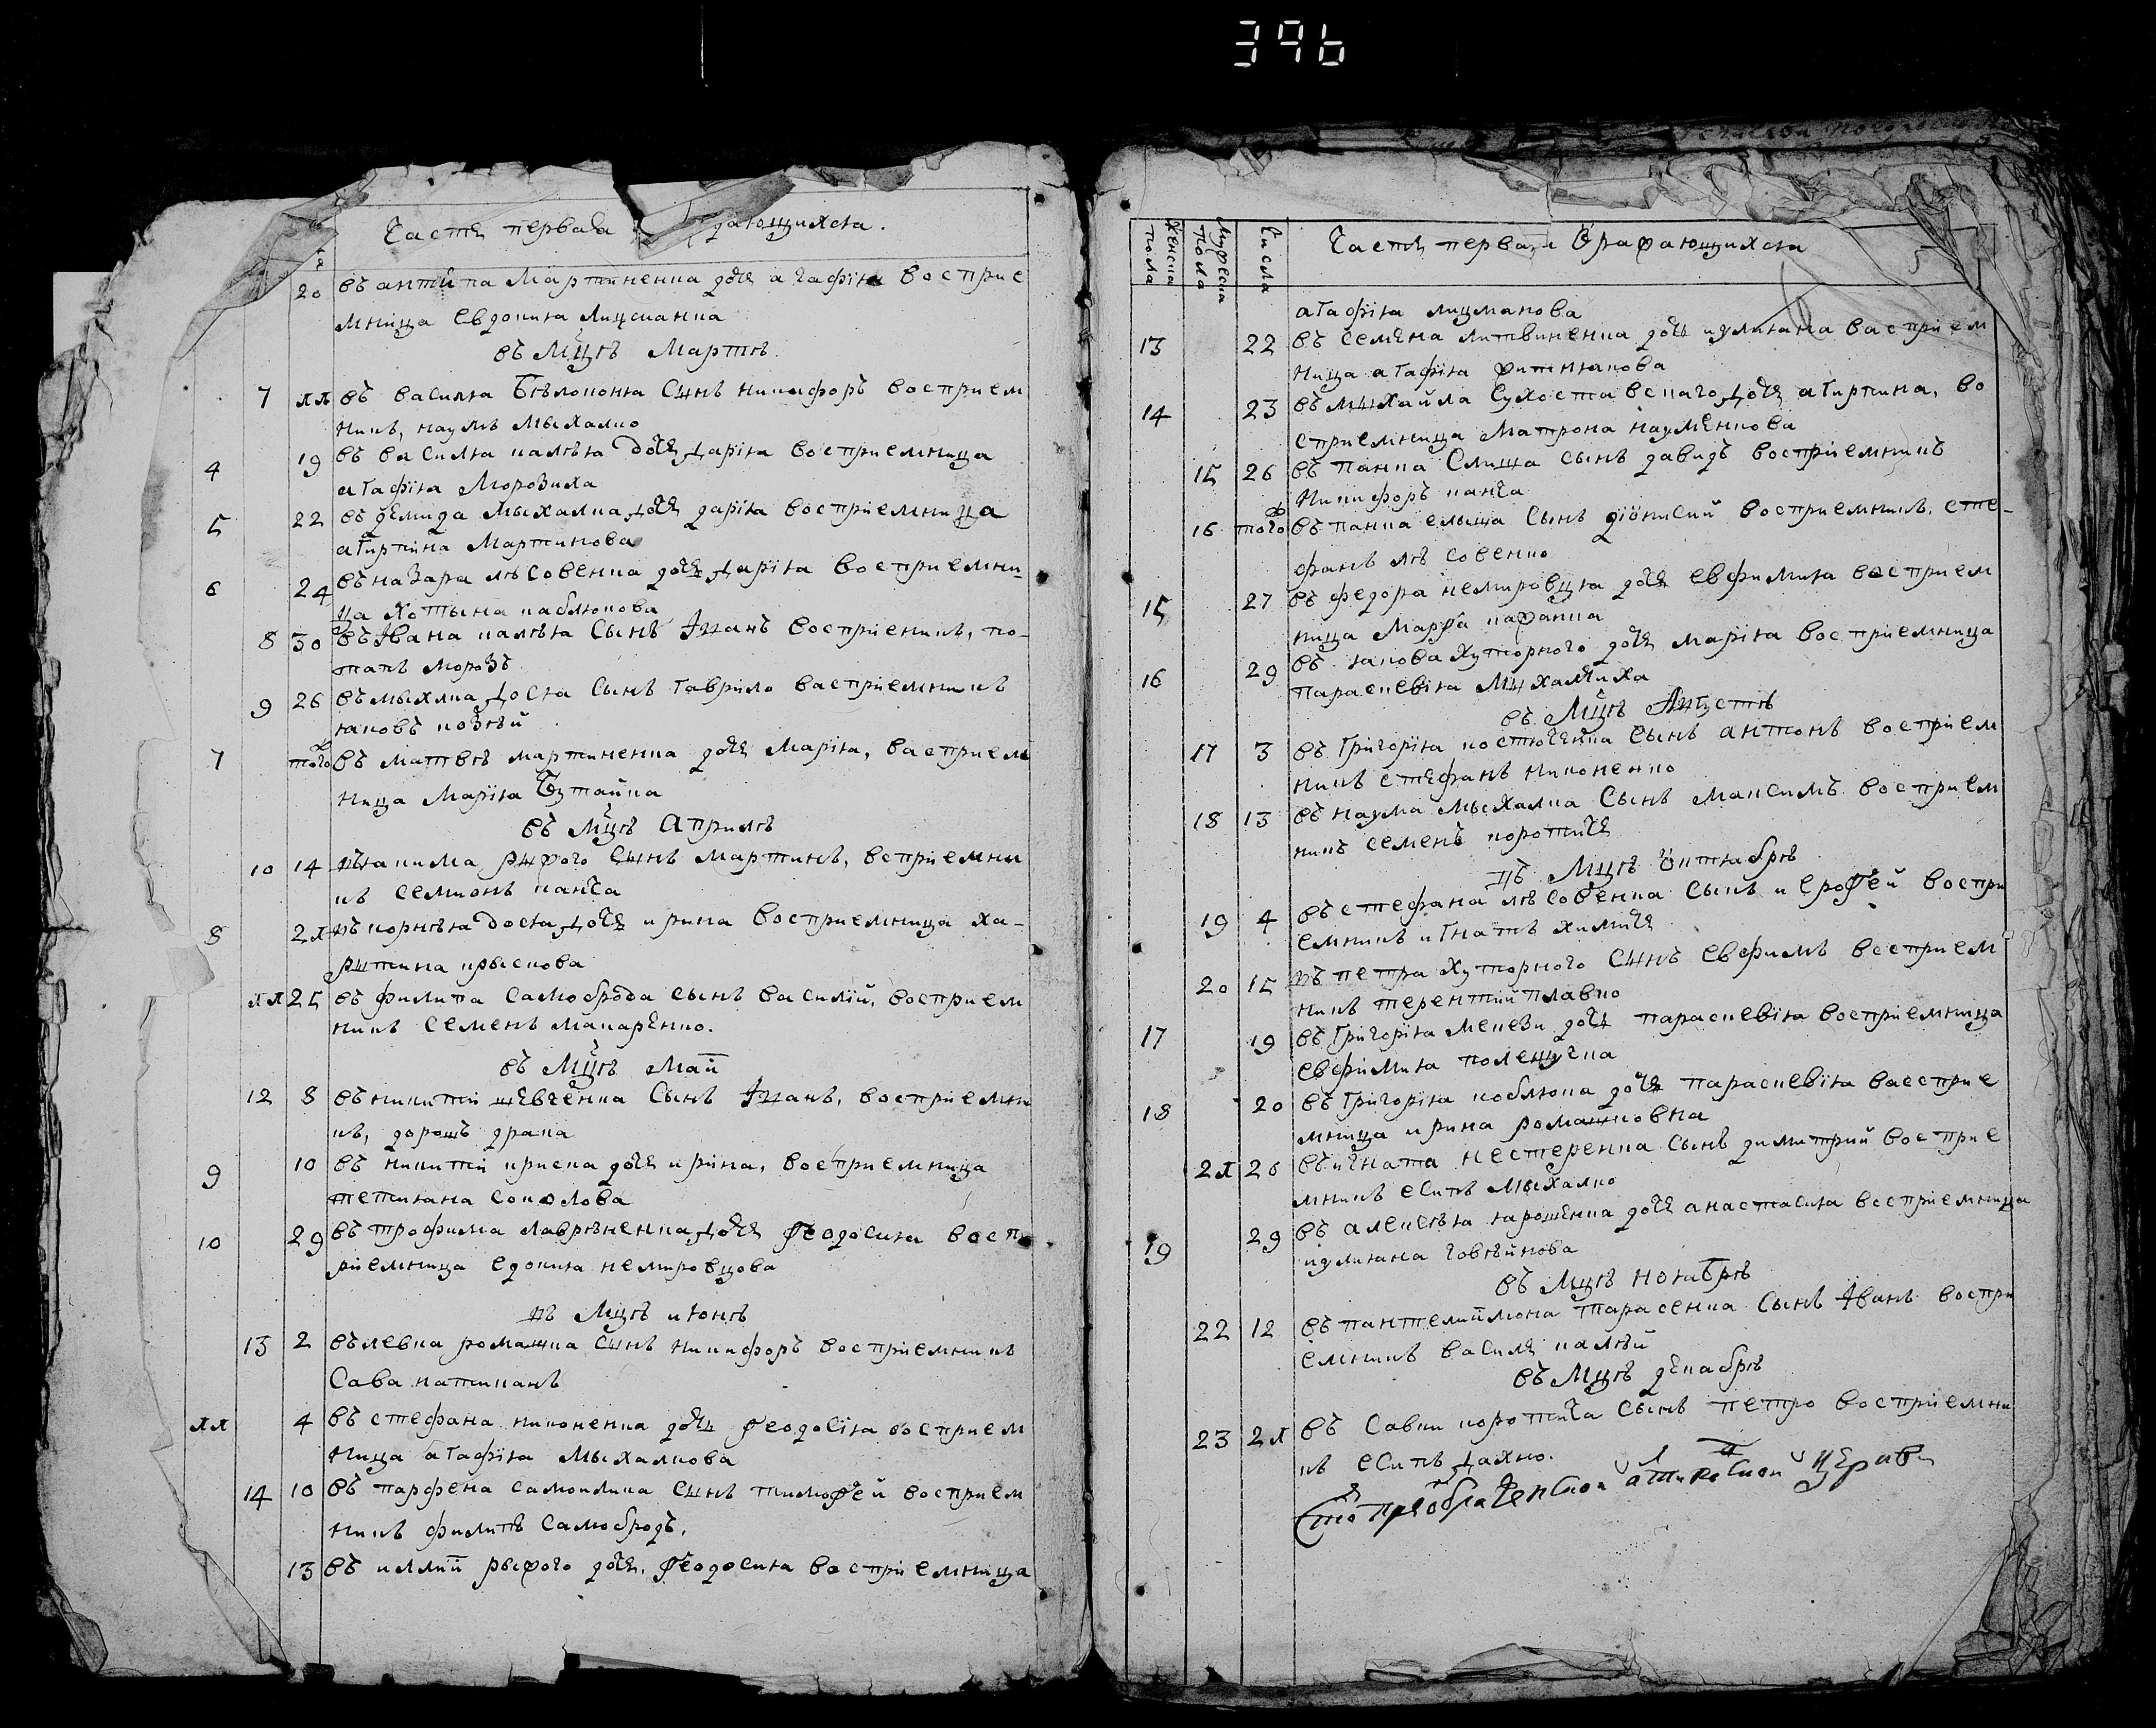 396
Часть первая раждающихся.
20 въ антипа Мартиненка дочь агафіѧ восприе
мница Евдокиѧ Лицманка
въ Мцѣ Мартѣ.
7 11 въ василѧ Бѣлоконѧ Сынъ никифоръ восприем
никъ, наумъ мыхалко
4 19 въ василѧ калѣѧ дочь дариѧ восприемница
агафіѧ Морозиха
5 22 въ демида Мыхалка дочь даріѧ восприемница
агирпина Мартинова
6 24 въ назара лѣсовенка дочь даріѧ восприемни-
ца Хотына каблюкова
8 30 въ Івана калѣѧ Сынъ Іванъ восприеникъ, по-
тапъ морозъ
9 26 въ мыхлка доста Сынъ гаврило васприемникъ
ѧковъ козѣй
7 того въ матвѣ мартиненка дочь Маріѧ, васприем
ница Маріѧ Бутайка
въ мцѣ Априлѣ
10 14 въ ѧкима рижого Сынъ мартинъ, всприемни
къ семионъ канча
8 21 въ корнѣѧ доста дочь ирина восприемница ха-
ритина крыскова
11 25 въ филипа Самоброда сынъ василій, восприем
никъ семенъ макаренко.
въ Мцѣ Маіи
12 8 въ никити шевченка Сынъ Іванъ, восприемни
къ, дорошъ драпа
9 10 въ никити криска дочь ирина, восприемница
тетиѧна соколова
10 29 въ трофима лаврѣненка дочь Феодосиѧ восп
риемница едокиѧ немировцова
въ Мцѣ июнѣ
13 2 въ левка ромашка Сынъ никифоръ восприемникъ
Сава натикань
11 4 въ стефана никоненка дочь феодосіѧ восприем
ница агафіѧ мыхалкова
14 10 въ парфена самоилика Сынъ тимофей восприем
никъ филипъ Самобродъ,
13 въ иллии рыжого дочь, Феодосиѧ восприемница
Женска пола
Мужеска пола
Числа
Часть первая Ражающихсѧ
агафіѧ лицманова
13 22 въ семена литвиненка дочь иулиѧна васприем
ница агафіѧ
14 23 въ михайла Сухоставскаго дочь агирпина, во
сприемница Матрона науменкова
15 26 въ панка Слища сынъ давидъ восприемникъ
Никифоръ канча
16 того въ панка елыща Сынъ діонисий восприемникъ, сте-
фанъ лѣсовенко
15 27 въ федора немировцѧ дочь евфимиѧ восприем
ница Марфа
16 29 въ ѧкова Хуторного дочь маріѧ восприемница
параскевіѧ Михалчиха
въ Мцѣ Августѣ
17 3 въ григоріѧ костюченка Сынъ антонъ восприем
никъ стефанъ никоненко
18 13 въ наума мыхалка Сынъ максимъ восприем
никъ семенъ коротичь
въ Мцѣ октѧбрѣ
19 4 въ стефана лѣсовенка Сынъ иерофей воспри
емникъ игнатъ химичь
20 15 въ петра Хуторного Сынъ евфимъ восприем
никъ терентий плавко
17 19 въ григоріѧ мекези дочь параскевіѧ восприемница
евфимиѧ
18 20 въ григоріѧ коблюка дочь параскевіѧ васприе
мница ирина ромашковна
21 26 въ игната нестеренка Сынъ димитрий восприе
мникъ есипъ мыхалко
19 29 въ алексѣѧ ѧрошенка дочь анастасиѧ восприемница
иулиѧна говѣйкова
въ Мцѣ ноѧбрѣ
22 12 въ пантелиймона тарасенка Сынъ Іванъ воспри
емникъ василь калѣй
въ Мцѣ декабрѣ
23 21 въ Савки коротича Сынъ петро восприемни
къ есипъ дахно.
Сто преображенской церкви